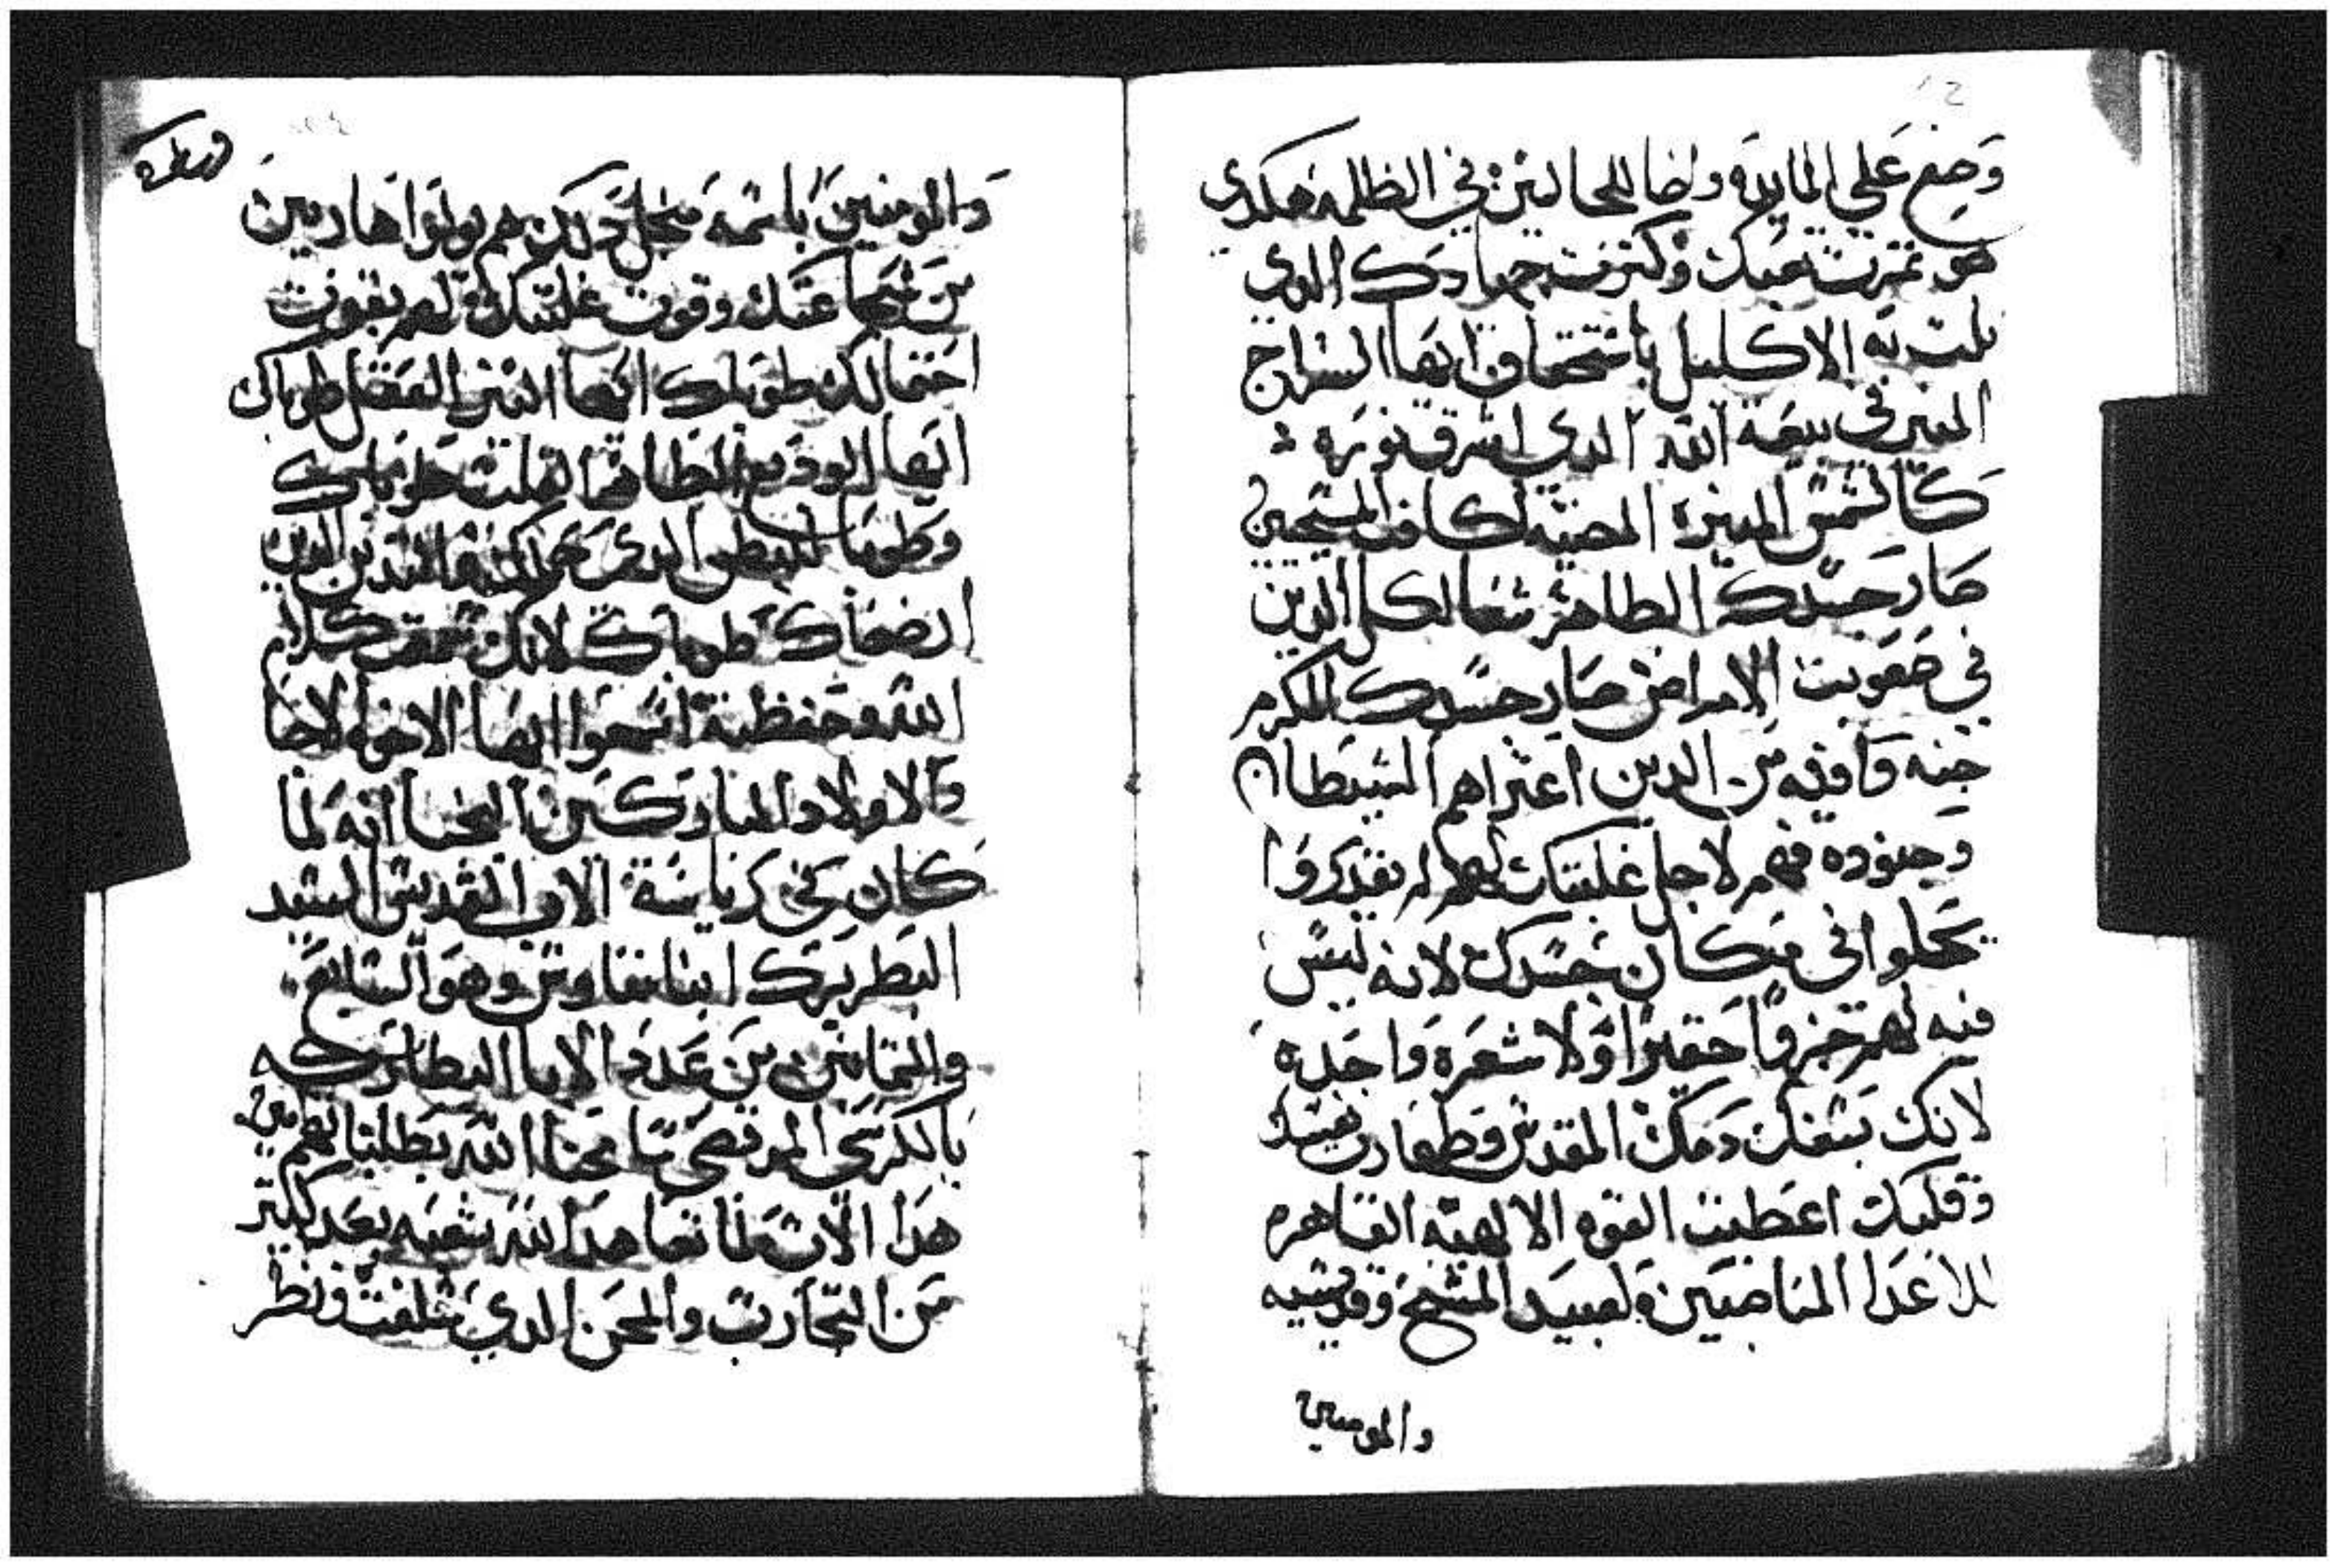 وضع علي المايده واضا للجالسين في الظلمه هكدي
هو تمرت تعبك وكترت جهادك الدي
نلت به الاكليل باستحقاق ايها السراج
المنير في بيعة الله الدي اشرق نوره
كالشمس المنيره المضيه لكافة المسيحيين
صار جسدك الطاهر شفا لكل الدين
في صعوبت الامراض صار جسدك المكرم
جنه وافيه من الدين اعتراهم الشيطان
وجنوده فهم لاجل غلبتك لهم لم يقدروا
يحلوا في مكان جسدك لانه ليس
فيه لهم جزوًا حقيرًا ولا شعره واحده
لانك بسفك دمك المقدس وطهارت نفسك
وقلبك اعطيت القوه الالهيه القاهره
للاعدا المناصبين لعبيد المسيح وقديسيه
والمومنين
والمومنين باسمه منجل دلك هم يولوا هاربين
من شجاعتك وقوت غلبتك لهم يقوت
احتمالك طوباك ايها البتر العقل طوباك
ايها الوديع الطاهر القلب طوباك
وطوبا للبطن الدي حملتك والتديين الدين
ارضعاك طوباك لانك سمعت كلام
الله وحفظته اسمعوا ايها الاخوه الاحبا
والاولاد المباركين النجبا انه لما
كان في رياسة الاب القديس السيد
البطريرك انبا بطرس وهو التاسع
والتمانين من عدد الابا البطاركه
بالكرسي المرقصي سامحنا الله بطلباتهم امين
هدا الاب لما تعاهد الله شعبه بعد كتير
من التجارب والمحن الدي سلفت ونظر